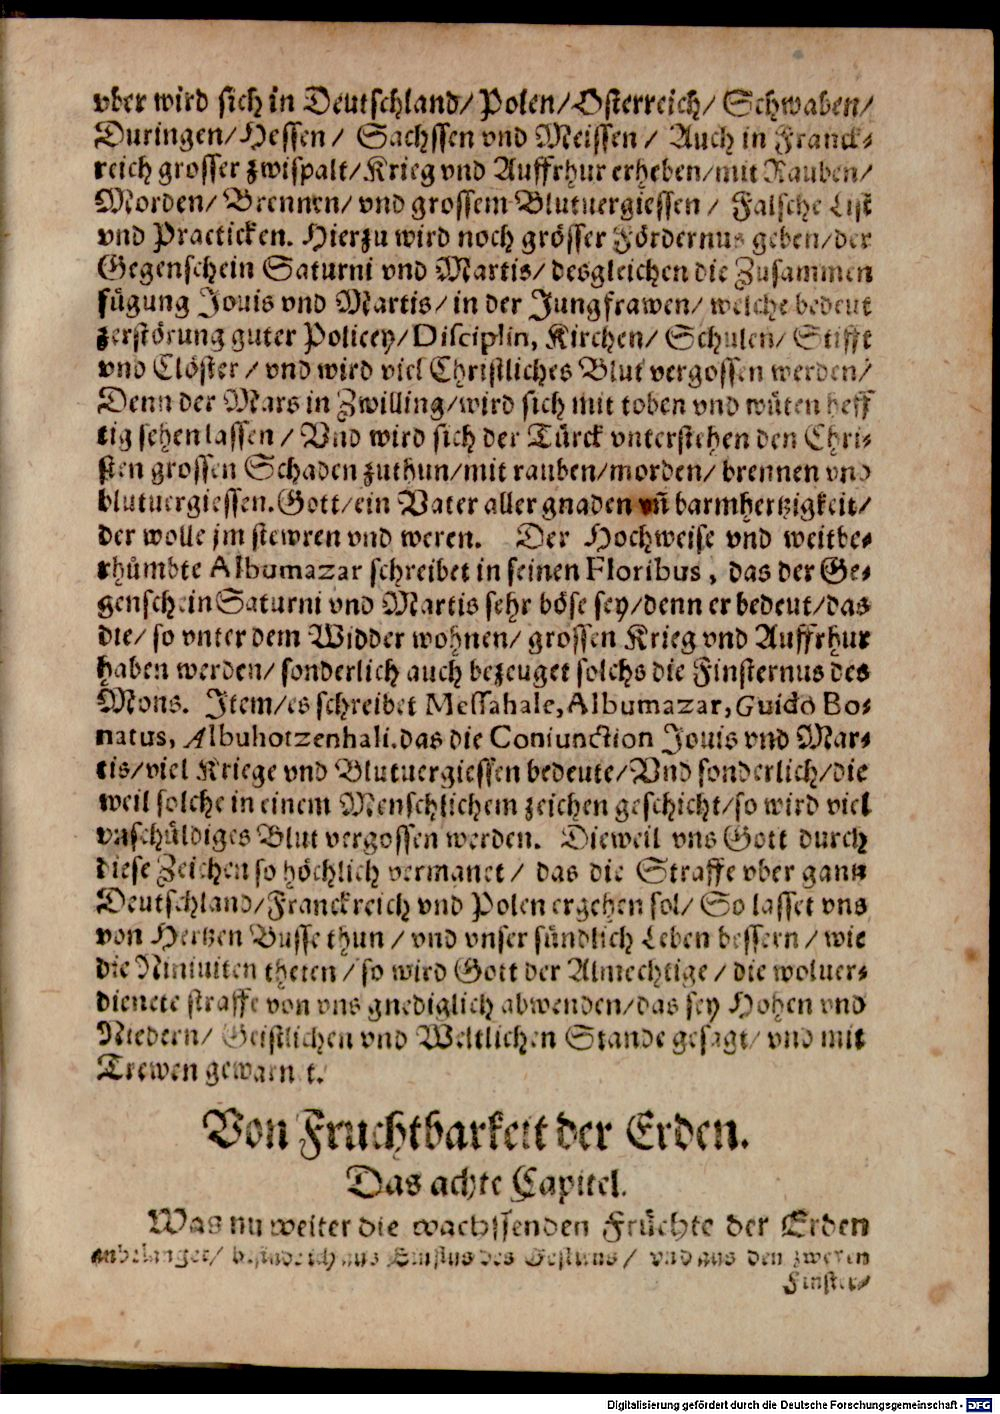 vber wird sich in Deutschland/ Polen/ Osterreich/ Schwaben/
Duringen/ Hessen/ Sachssen vnd Meissen/ Auch in Franck-
reich grosser zwispalt/ Krieg vnd Auffrhur erheben/ mit Rauben/
Morden/ Brennen/ vnd grossem Blutuergiessen/ Falsche List
vnd Practicken. Hierzu wird noch grösser Fördernus geben/ der
Gegenschein Saturni vnd Martis/ desgleichen die Zusammen
fügung Jouis vnd Martis/ in der Jungfrawen/ welche bedeut
zerstörung guter Policey/ Disciplin, Kirchen/ Schulen/ Stifft
vnd Clöster/ vnd wird viel Christliches Blut vergossen werden/
Denn der Mars in Zwilling/ wird sich mit toben vnd wüten heff
tig sehen lassen/ Vnd wird sich der Türck vnterstehen den Chri-
sten grossen Schaden zuthun/ mit rauben/ morden/ brennen vnd
blutuergiessen. Gott/ ein Vater aller gnaden vñ barmhertzigkeit/
der wolle jm stewren vnd weren. Der Hochweise vnd weitbe-
rhümbte Albumazar schreibet in seinen Floribus, das der Ge-
genschein Saturni vnd Martis sehr böse sey/ denn er bedeut/ das
die/ so vnter dem Widder wohnen/ grossen Krieg vnd Auffrhur
haben werden/ sonderlich auch bezeuget solchs die Finsternus des
Mons. Item/ es schreibet Messahale, Albumazar, Guido Bo-
natus, Albuhotzenhali. das die Coniunction Jouis vnd Mar-
tis/ viel Kriege vnd Blutuergiessen bedeute/ Vnd sonderlich/ die
weil solche in einem Menschlichem zeichen geschicht/ so wird viel
vnschüldiges Blut vergossen werden. Dieweil vns Gott durch
diese Zeichen so höchlich vermanet/ das die Straffe vber gantz
Deutschland/ Franckreich vnd Polen ergehen sol/ So lasset vns
von Hertzen Busse thun/ vnd vnser sündlich Leben bessern/ wie
die Niniuiten theten/ so wird Gott der Almechtige/ die woluer-
dienete straffe von vns gnediglich abwenden/ das sey Hohen vnd
Niedern/ Geistlichen vnd Weltlichen Stande gesagt/ vnd mit
Trewen gewarnet.
Von Fruchtbarkeit der Erden.
Das achte Capitel.
Was nu weiter die wachssenden Früchte der Erden
anbelanget/ befinde ich aus Einflus des Gestirns/ vnd aus den zweyen
Finster-
Digitalisierung gefördert durch die Deutsche Forschungsgemeinschaft - DFG